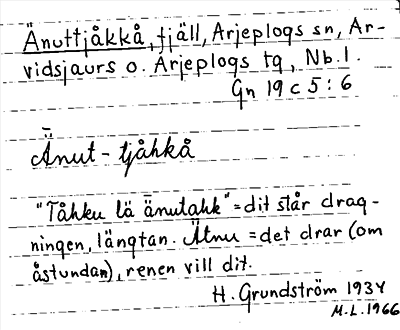 Änuttjåkkå, fjäll, Arjeplogs sn, Ar-
vidsjaurs o. Arjeplogs tg, Nb. l.
Gn 19 c 5 : 6
Ā̈nut - tjåhkå
"Tåhku lä ā̈nutahk" = dit står drag-
ningen, längtan. Ätnu = det drar (om
åstundan), renen vill dit.
H. Grundström 1934
M.L. 1966